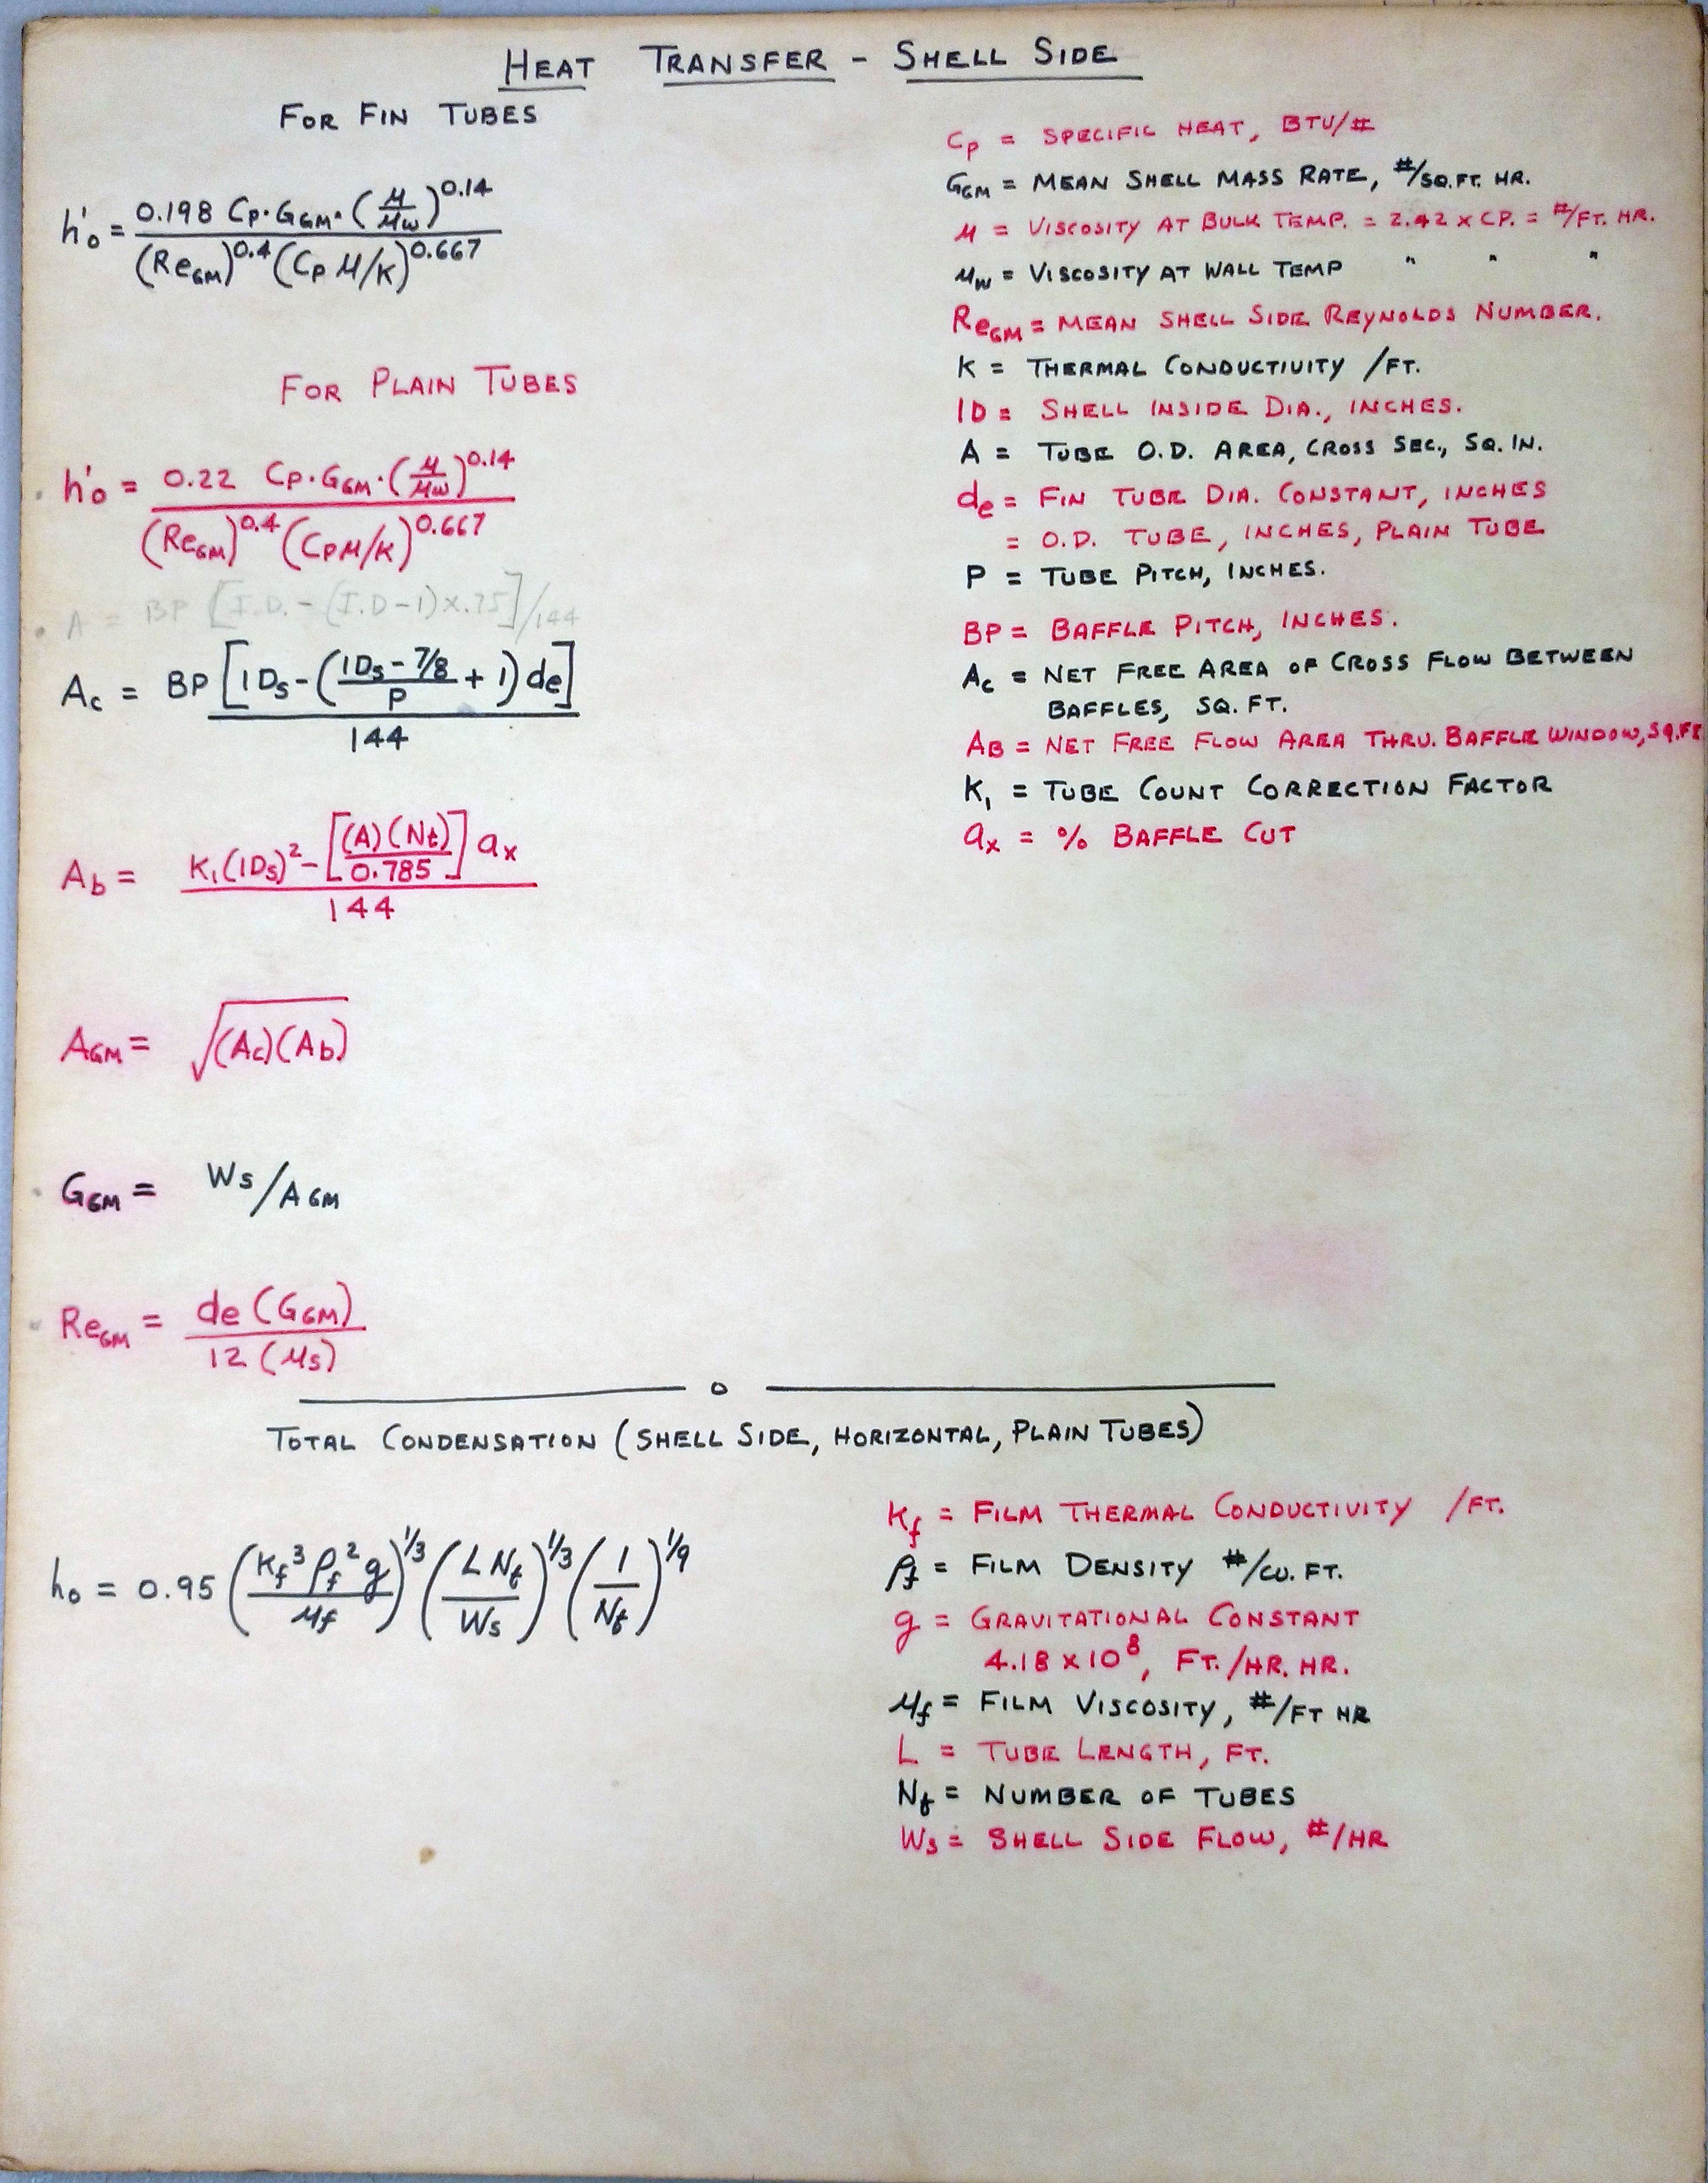 HEAT TRANSFER - SHELL SIDE
FOR FIN TUBES
h'o = 0.198 Cp·GGM·(μ/μw)^0.14 / (ReGM)^0.4 (Cp μ/K)^0.667
FOR PLAIN TUBES
h'o = 0.22 Cp·GGM·(μ/μw)^0.14 / (ReGM)^0.4 (Cp μ/K)^0.667
A = BP [I.D. - (I.D-1)x.75]/144
Ac = BP [IDs - ((IDs - 7/8)/P + 1) de] / 144
Ab = K1(IDs)² - [(A)(Nt)/0.785] ax / 144
AGM = √(Ac)(Ab)
GGM = Ws/AGM
ReGM = de (GGM) / 12 (μs)
Cp = SPECIFIC HEAT, BTU/#
GGM = MEAN SHELL MASS RATE, #/SQ.FT. HR.
μ = VISCOSITY AT BULK TEMP. = 2.42 x CP. = #/FT. HR.
μw = VISCOSITY AT WALL TEMP " " "
ReGM = MEAN SHELL SIDE REYNOLDS NUMBER.
K = THERMAL CONDUCTIVITY /FT.
ID = SHELL INSIDE DIA., INCHES.
A = TUBE O.D. AREA, CROSS SEC., SQ. IN.
de = FIN TUBE DIA. CONSTANT, INCHES
= O.D. TUBE, INCHES, PLAIN TUBE
P = TUBE PITCH, INCHES.
BP = BAFFLE PITCH, INCHES.
Ac = NET FREE AREA OF CROSS FLOW BETWEEN
BAFFLES, SQ. FT.
AB = NET FREE FLOW AREA THRU. BAFFLE WINDOW, SQ.FT.
K1 = TUBE COUNT CORRECTION FACTOR
ax = % BAFFLE CUT
TOTAL CONDENSATION (SHELL SIDE, HORIZONTAL, PLAIN TUBES)
ho = 0.95 (Kf³ ρf² g / μf)^1/3 (L Nt / Ws)^1/3 (1 / Nt)^1/9
Kf = FILM THERMAL CONDUCTIVITY /FT.
ρf = FILM DENSITY #/CU. FT.
g = GRAVITATIONAL CONSTANT
4.18 x 10^8, FT./HR. HR.
μf = FILM VISCOSITY, #/FT HR
L = TUBE LENGTH, FT.
Nt = NUMBER OF TUBES
Ws = SHELL SIDE FLOW, #/HR